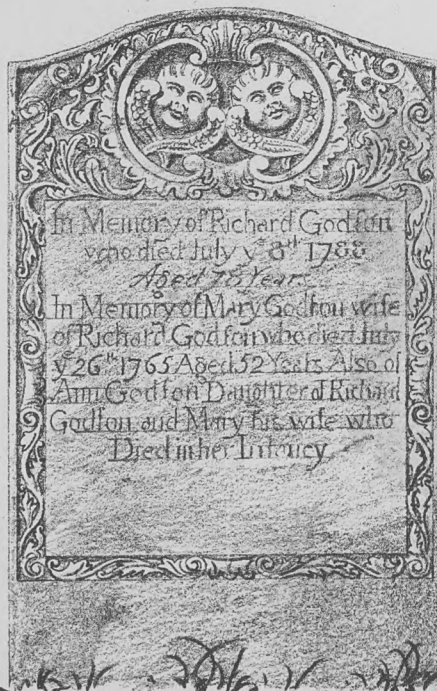 In Memory of Richard Godſon
who died July yͤ 8ᵗʰ 1788
Aged 78 Years
In Memory of Mary Godſon wife
of Richard Godſon who died July
yͤ 26ᵗʰ 1765 Aged 52 Years Also of
Ann Godſon Daughter of Richard
Godſon and Mary his wife who
Died in her Infancy